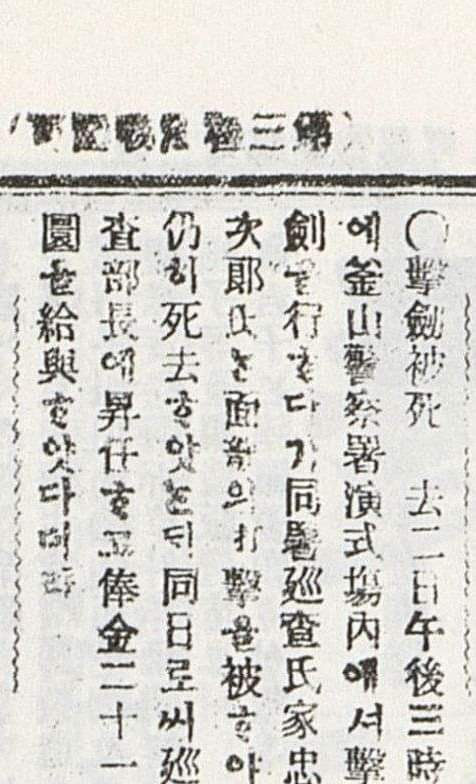 第三種
○擊劒被死 去二日午後三時
에釜山警察署演式塲內에셔擊
劍을行ᄒᆞ다가同署巡査氏家忠
次郞氏ᄂᆞᆫ面部의打擊을被ᄒᆞ야
仍히死去ᄒᆞ얏ᄂᆞᆫᄃᆡ同日로써巡
査部長에昇任ᄒᆞ고俸金二十一
圜을給與ᄒᆞ얏다더라